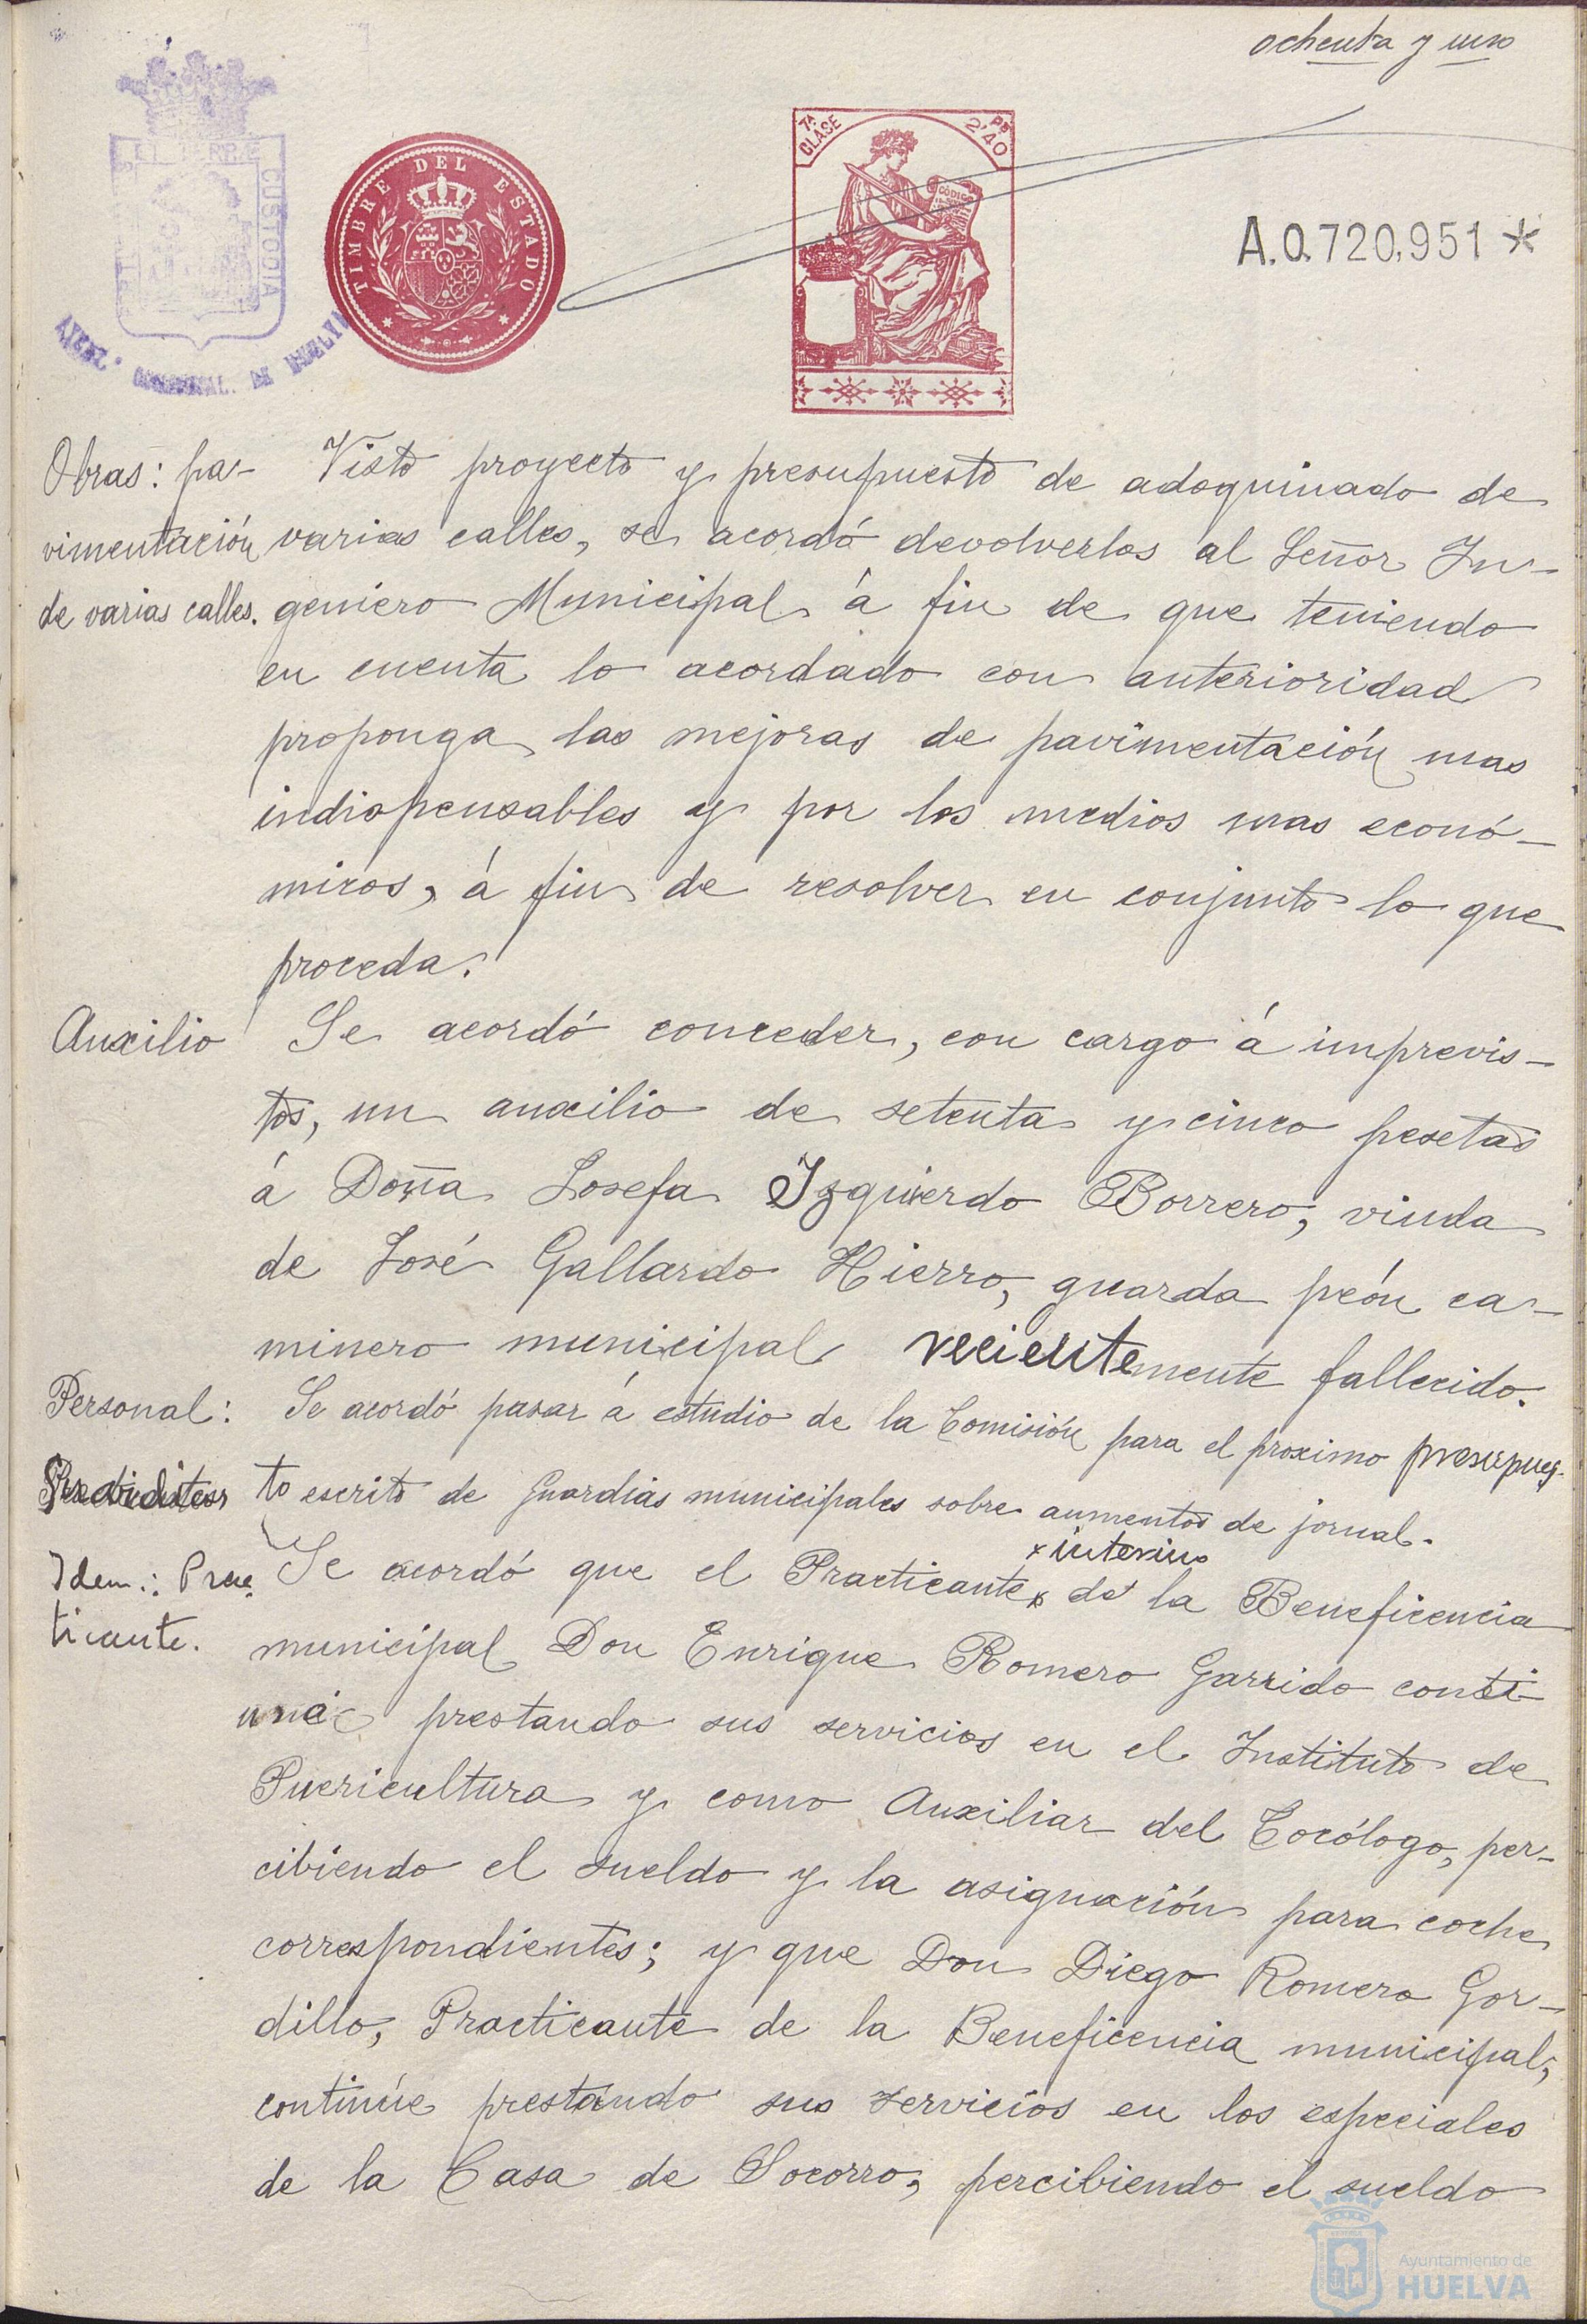 ochenta y uno
TIMBRE DEL ESTADO
7ª CLASE
Ps 2'40
CODIGO
CUSTODIA
A.0.720.951 *
DE HUELVA
Obras: pa-
vimentación
de varias calles.
Visto proyecto y presupuesto de adoquinado de
varias calles, se acordó devolverlos al Señor In-
geniero Municipal á fin de que teniendo
en cuenta lo acordado con anterioridad
proponga las mejoras de pavimentación mas
indispensables y por los medios mas econó-
micos, á fin de resolver en conjunto lo que
proceda.
Auxilio
Se acordó conceder, con cargo á imprevis-
tos, un auxilio de setenta y cinco pesetas
á Doña Josefa Izquierdo Borrero, viuda
de José Gallardo Hierro, guarda peón ca-
minero municipal recientemente fallecido.
Personal:
Se acordó pasar á estudio de la Comisión para el proximo presupues-
to escrito de Guardias municipales sobre aumentos de jornal.
Idem: Prac-
ticante.
x interino
Se acordó que el Practicante x de la Beneficencia
municipal Don Enrique Romero Garrido conti-
núe prestando sus servicios en el Instituto de
Puericultura y como Auxiliar del Tocólogo, per-
cibiendo el sueldo y la asignación para coche
correspondientes; y que Don Diego Romero Gor-
dillo, Practicante de la Beneficencia municipal,
continúe prestando sus servicios en los especiales
de la Casa de Socorro, percibiendo el sueldo
Ayuntamiento de
HUELVA